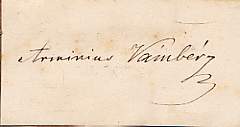 Arminius Vámbéry